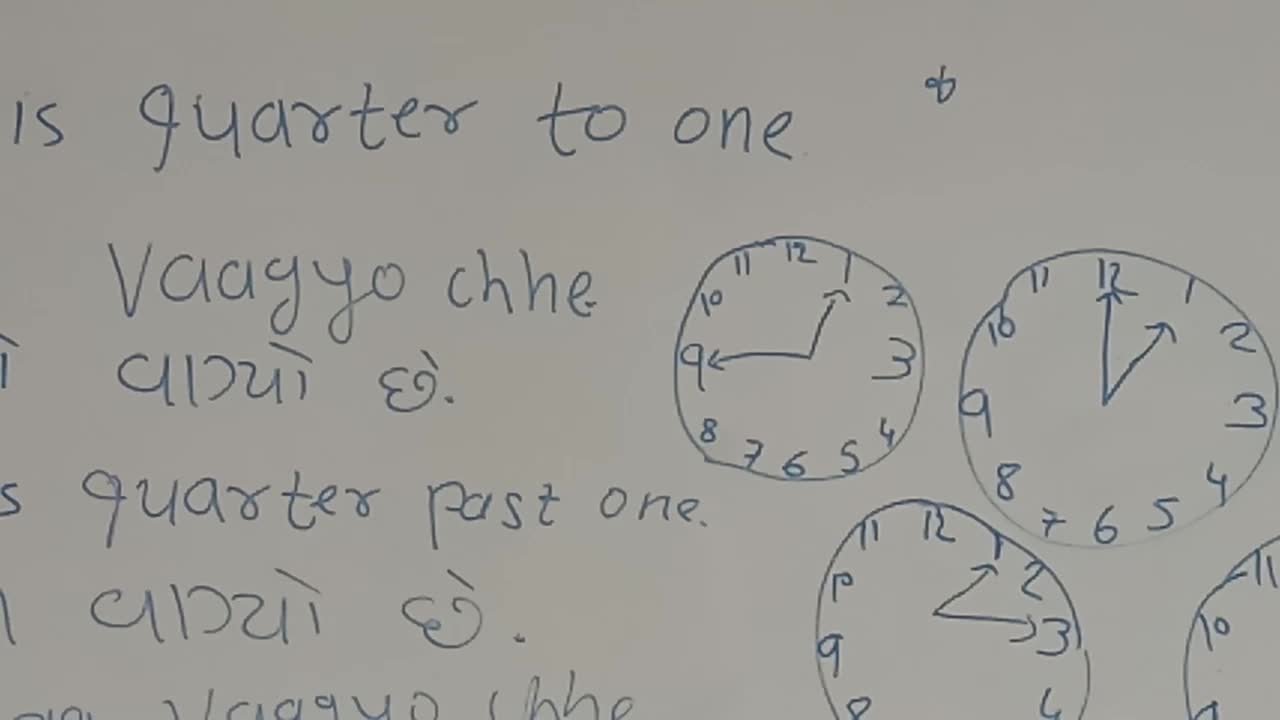 is quarter to one
Vaagyo chhe
વાગ્યો છે.
s quarter past one.
વાગ્યો છે.
Vaagyo chhe
11 12 1
10 2
9 3
8 4
7 6 5
11 12 1
10 2
9 3
8 4
7 6 5
11 12 1
2
9 3
8 4
11
10
9